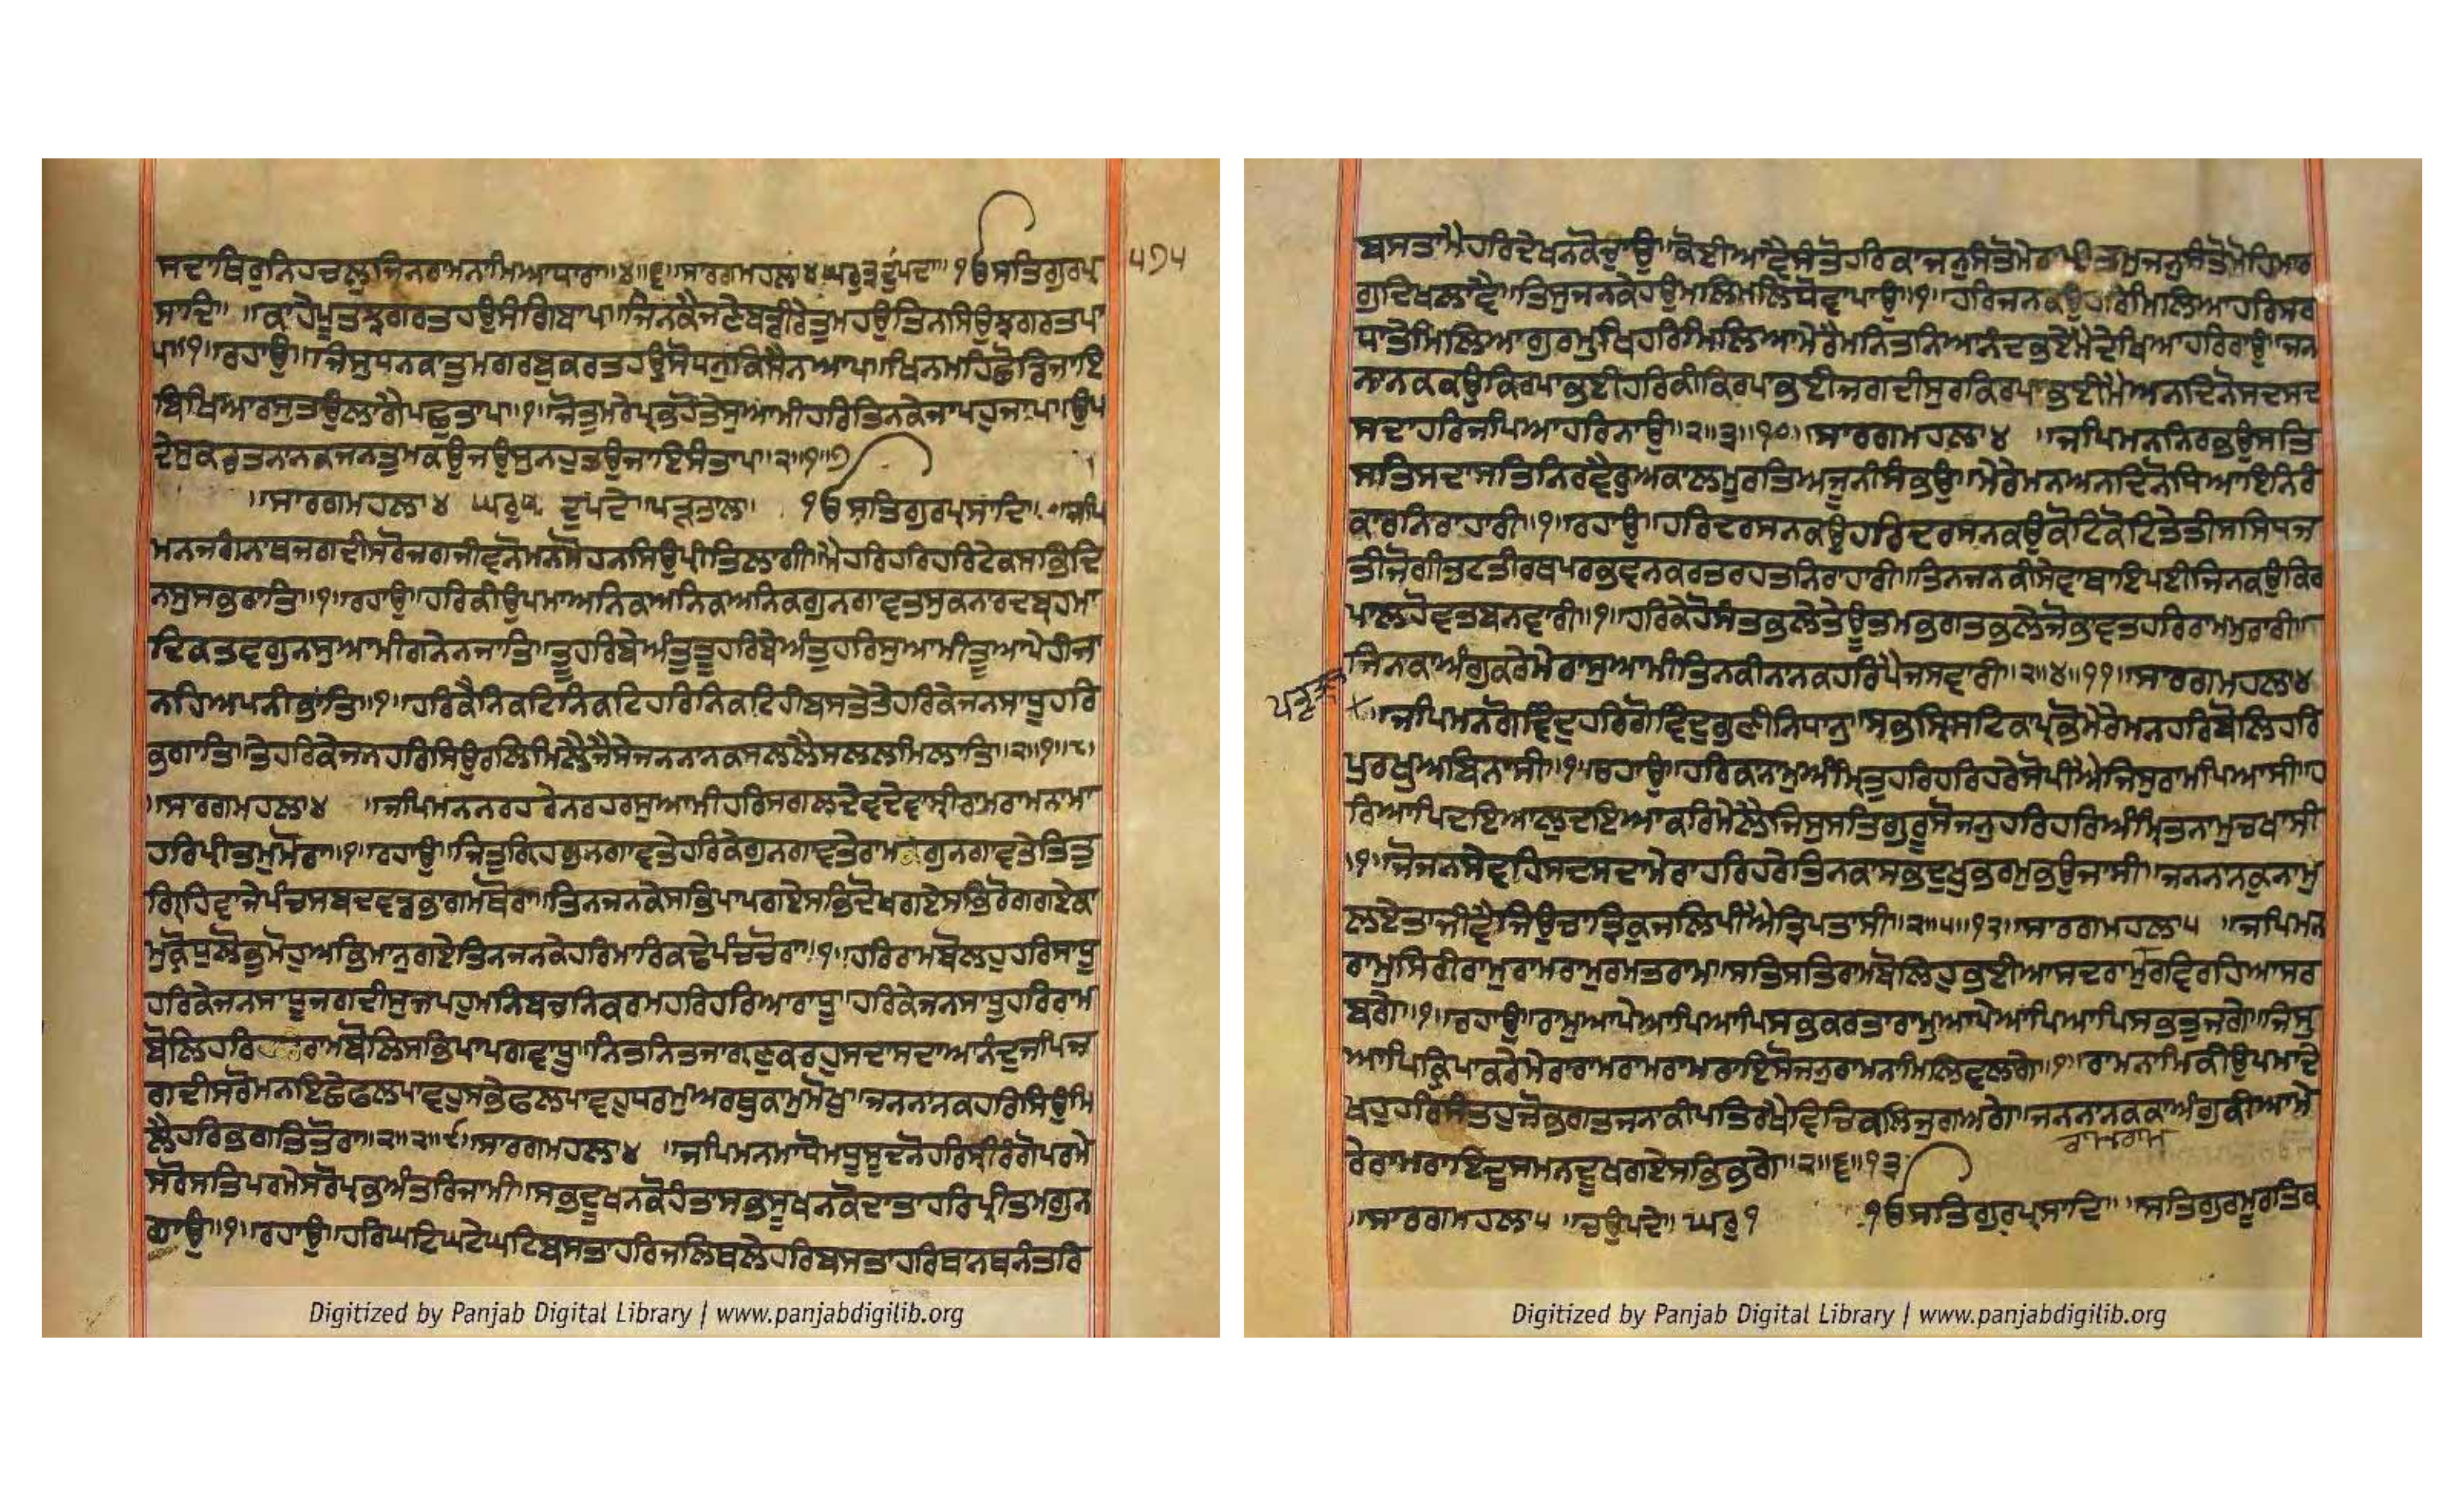 ਸਦਾਥਿਰੁਨਿਹਚਲੁਜਿਨਰਾਮਨਾਮਿਆਧਾਰਾ॥੪॥੬॥ਸਾਰਗਮਹਲਾ੪ਘਰੁ੩ਦੁਪਦਾ ੴਸਤਿਗੁਰਪ੍ਰ
੫੭੫
ਸਾਦਿ॥ ਕਾਹੇਪੂਤਝਗਰਤਹਉਸੰਗਿਬਾਪ॥ਜਿਨਕੇਜਣੇਬਡੀਰੇਤੁਮਹਉਤਿਨਸਿਉਝਗਰਤਪਾ
ਪ॥੧॥ਰਹਾਉ॥ਜਿਸੁਧਨਕਾਤੁਮਗਰਬੁਕਰਤਹਉਸੋਧਨੁਕਿਸੈਨਆਪ॥ਖਿਨਮਹਿਛੋਡਿਜਾਇ
ਬਿਖਿਆਰਸੁਤਉਲਾਗੈਪਛੁਤਾਪ॥੧॥ਜੋਤੁਮਰੇਪ੍ਰਭਹੋਤੇਸੁਆਮੀਹਰਿਤਿਨਕੇਜਾਪਹੁਜਾਪ॥ਉਪ
ਦੇਸੁਕਰਤਨਾਨਕਜਨਤੁਮਕਉਜਉਸੁਨਹੁਤਉਜਾਇਸੰਤਾਪ॥੨॥੧॥੭
॥ਸਾਰਗਮਹਲਾ੪ ਘਰੁ੫ ਦੁਪਦੇ ਪੜਤਾਲ ੴਸਤਿਗੁਰਪ੍ਰਸਾਦਿ॥ਜਪਿ
ਮਨਜਗੰਨਾਥਜਗਦੀਸਰੋਜਗਜੀਵਨੋਮਨਮੋਹਨਸਿਉਪ੍ਰੀਤਿਲਾਗੀ॥ਮੈਹਰਿਹਰਿਹਰਿਟੇਕਸਭਿਦਿ
ਨਸੁਸਭਰਾਤਿ॥੧॥ਰਹਾਉ॥ਹਰਿਕੀਉਪਮਾਅਨਿਕਅਨਿਕਅਨਿਕਗੁਨਗਾਵਤਸੁਕਨਾਰਦਬ੍ਰਹਮਾ
ਦਿਕਤਵਗੁਨਸੁਆਮੀਗਨੇਨਜਾਤਿ॥ਤੂਹਰਿਬੇਅੰਤੁਤੂਹਰਿਬੇਅੰਤੁਹਰਿਸੁਆਮੀਤੂਆਪੇਹੀਜਾ
ਨਹਿਅਪਨੀਭਾਂਤਿ॥੧॥ਹਰਿਕੈਨਿਕਟਿਨਿਕਟਿਹਰਿਨਿਕਟਿਹੀਬਸਤੇਤੇਹਰਿਕੇਜਨਸਾਧੂਹਰਿ
ਭਗਾਤਿ॥ਤੇਹਰਿਕੇਜਨਹਰਿਸਿਉਰਲਿਮਿਲੇਜੈਸੇਜਨਨਾਨਕਸਲਲੈਸਲਲਮਿਲਾਤਿ॥੨॥੧॥੮॥
॥ਸਾਰਗਮਹਲਾ੪ ॥ਜਪਿਮਨਨਰਹਰੇਨਰਹਰਸੁਆਮੀਹਰਿਸਗਲਦੇਵਦੇਵਾਸ੍ਰੀਰਾਮਰਾਮਨਾਮਾ
ਹਰਿਪ੍ਰੀਤਮੁਮੋਰਾ॥੧॥ਰਹਾਉ॥ਜਿਤੁਗ੍ਰਿਹਿਗੁਨਗਾਵਤੇਹਰਿਕੇਗੁਨਗਾਵਤੇਰਾਮਗੁਨਗਾਵਤੇਤਿਤੁ
ਗ੍ਰਿਹਿਵਾਜੇਪੰਚਸਬਦਵਡਭਾਗਮਥੋਰਾ॥ਤਿਨਜਨਕੇਸਭਿਪਾਪਗਏਸਭਿਦੋਖਗਏਸਭਿਰੋਗਗਏਕਾ
ਮੁਕ੍ਰੋਧੁਲੋਭੁਮੋਹੁਅਭਿਮਾਨੁਗਏਤਿਨਜਨਕੇਹਰਿਮਾਰਿਕਢੇਪੰਚਚੋਰਾ॥੧॥ਹਰਿਰਾਮਬੋਲਹੁਹਰਿਸਾਧੂ
ਹਰਿਕੇਜਨਸਾਧੂਜਗਦੀਸੁਜਪਹੁਮਨਿਬਚਨਿਕਰਮਹਰਿਹਰਿਆਰਾਧੂ॥ਹਰਿਕੇਜਨਸਾਧੂਹਰਿਰਾਮ
ਬੋਲਿਹਰਿਰਾਮਬੋਲਿਸਭਿਪਾਪਗਵਾਧੂ॥ਨਿਤਨਿਤਜਾਗਰਣੁਕਰਹੁਸਦਾਸਦਾਆਨੰਦੁਜਪਿਜ
ਗਦੀਸਰੋਮਨਇਛੇਫਲਪਾਵਹੁਸਭੇਫਲਪਾਵਹੁਧਰਮੁਅਰਥੁਕਾਮੁਮੋਖੁ॥ਜਨਨਾਨਕਹਰਿਸਿਉਮਿ
ਲੇਹਰਿਭਗਤਿਤੋਰਾ॥੨॥੨॥੯॥ਸਾਰਗਮਹਲਾ੪ ॥ਜਪਿਮਨਮਾਧੋਮਧੁਸੂਦਨੋਹਰਿਸ੍ਰੀਰੰਗੋਪਰਮੇ
ਸਰੋਸਤਿਪਰਮੇਸਰੋਪ੍ਰਭੁਅੰਤਰਿਜਾਮੀ॥ਸਭਦੂਖਨਕੋਹੰਤਾਸਭਸੂਖਨਕੋਦਾਤਾਹਰਿਪ੍ਰੀਤਮਗੁਨ
ਗਾਉ॥੧॥ਰਹਾਉ॥ਹਰਿਘਟਿਘਟੇਘਟਿਬਸਤਾਹਰਿਜਲਿਥਲੇਹਰਿਬਸਤਾਹਰਿਥਾਨਥਾਨੰਤਰਿ
Digitized by Panjab Digital Library | www.panjabdigilib.org
ਬਸਤਾਮੈਹਰਿਦੇਖਨਕੋਚਾਉ॥ਕੋਈਆਵੈਸੰਤੋਹਰਿਕਾਜਨੁਸੰਤੋਮੇਰਾਪ੍ਰੀਤਮੁਜਨੁਸੰਤੋਮੋਹਿਮਾਰ
ਗੁਦਿਖਲਾਵੈ॥ਤਿਸੁਜਨਕੇਹਉਮਲਿਮਲਿਧੋਵਾਪਾਉ॥੧॥ਹਰਿਜਨਕਉਹਰਿਮਿਲਿਆਹਰਿਸਰ
ਧਾਤੇਮਿਲਿਆਗੁਰਮੁਖਿਹਰਿਮਿਲਿਆ॥ਮੇਰੈਮਨਿਤਨਿਆਨੰਦਭਏਮੈਦੇਖਿਆਹਰਿਰਾਉ॥ਜਨ
ਨਾਨਕਕਉਕਿਰਪਾਭਈਹਰਿਕੀਕਿਰਪਾਭਈਜਗਦੀਸੁਰਕਿਰਪਾਭਈ॥ਮੈਅਨਦਿਨੋਸਦਸਦ
ਸਦਾਹਰਿਜਪਿਆਹਰਿਨਾਉ॥੨॥੩॥੧੦॥ਸਾਰਗਮਹਲਾ੪ ॥ਜਪਿਮਨਨਿਰਭਉਸਤਿ
ਸਤਿਸਦਾਸਤਿਨਿਰਵੈਰੁਅਕਾਲਮੂਰਤਿਅਜੂਨੀਸੰਭਉ॥ਮੇਰੇਮਨਅਨਦਿਨੋਧਿਆਇਨਿਰੰ
ਕਾਰਨਿਰਾਹਾਰੀ॥੧॥ਰਹਾਉ॥ਹਰਿਦਰਸਨਕਉਹਰਿਦਰਸਨਕਉਕੋਟਿਕੋਟਿਤੇਤੀਸਸਿਧਜ
ਤੀਜੋਗੀਤਟਤੀਰਥਪਰਭਵਨਕਰਤਰਹਤਨਿਰਾਹਾਰੀ॥ਤਿਨਜਨਕੀਸੇਵਾਥਾਇਪਈਜਿਨਕਉਕਿਰ
ਪਾਲਹੋਵਤਬਨਵਾਰੀ॥੧॥ਹਰਿਕੇਹੋਸੰਤਭਲੇਤੇਊਤਮਭਗਤਭਲੇਜੋਭਾਵਤਹਰਿਰਾਮਮੁਰਾਰੀ॥
ਜਿਨਕਾਅੰਗੁਕਰੇਮੇਰਾਸੁਆਮੀਤਿਨਕੀਨਾਨਕਹਰਿਪੈਜਸਵਾਰੀ॥੨॥੪॥੧੧॥ਸਾਰਗਮਹਲਾ੪
ਪੜਤਾਲ
॥ਜਪਿਮਨਗੋਵਿੰਦੁਹਰਿਗੋਵਿੰਦੁਗੁਣੀਨਿਧਾਨੁਸਭਸ੍ਰਿਸਟਿਕਾਪ੍ਰਭੋਮੇਰੇਮਨਹਰਿਬੋਲਿਹਰਿ
ਪੁਰਖੁਅਬਿਨਾਸੀ॥੧॥ਰਹਾਉ॥ਹਰਿਕਾਨਾਮੁਅੰਮ੍ਰਿਤੁਹਰਿਹਰਿਹਰੇਸੋਪੀਐਜਿਸੁਰਾਮਪਿਆਸੀ॥ਹ
ਰਿਆਪਿਦਇਆਲੁਦਇਆਕਰਿਮੇਲੈਜਿਸੁਸਤਿਗੁਰੂਸੋਜਨੁਹਰਿਹਰਿਅੰਮ੍ਰਿਤਨਾਮੁਚਖਾਸੀ
॥੧॥ਜੋਜਨਸੇਵਹਿਸਦਸਦਾਮੇਰਾਹਰਿਹਰੇਤਿਨਕਾਸਭਦੂਖੁਭਰਮੁਭਉਜਾਸੀ॥ਜਨਨਾਨਕੁਨਾਮੁ
ਲਏਤਾਜੀਵੈਜਿਉਚਾਤ੍ਰਿਕੁਜਲਿਪੀਐਤ੍ਰਿਪਤਾਸੀ॥੨॥੫॥੧੨॥ਸਾਰਗਮਹਲਾ੫ ॥ਜਪਿਮਨ
ਰਾਮੁਸਿਰੀਰਾਮੁਰਾਮਰਾਮੁਰਮਤਰਾਮ॥ਸਤਿਸਤਿਰਾਮਬੋਲਿਹੁਭਈਆਸਦਰਾਮੁਰਵਿਰਹਿਆਸਰ
ਬਗੇ॥੧॥ਰਹਾਉ॥ਰਾਮੁਆਪੇਆਪਿਆਪਿਸਭਕਰਤਾਰਾਮੁਆਪੇਆਪਿਆਪਿਸਭਤੁਜਗੇ॥ਜਿਸੁ
ਆਪਿਕ੍ਰਿਪਾਕਰੇਮੇਰਾਰਾਮਰਾਮਰਾਮਰਾਇਸੋਜਨੁਰਾਮਨਾਮਿਲਿਵਲਾਗੇ॥੧॥ਰਾਮਨਾਮਿਕੀਉਪਮਾਦੇ
ਖਹੁਹਰਿਸੰਤਹੁਜੋਭਗਤਜਨਾਕੀਪਤਿਰਖੈਵਿਚਿਕਲਿਜੁਗਅਗੇ॥ਜਨਨਾਨਕਕਾਅੰਗੁਕੀਆਮੇ
ਰਾਮਰਾਮ
ਰੇਰਾਮਰਾਇਦੂਸਮਨਦੂਖਗਏਸਭਿਭਗੇ॥੨॥੬॥੧੩
॥ਸਾਰਗਮਹਲਾ੫ ॥ਚਉਪਦੇ॥ਘਰੁ੧ ੴਸਤਿਗੁਰਪ੍ਰਸਾਦਿ॥ ॥ਸਤਿਗੁਰਮੂਰਤਿਕ
Digitized by Panjab Digital Library | www.panjabdigilib.org